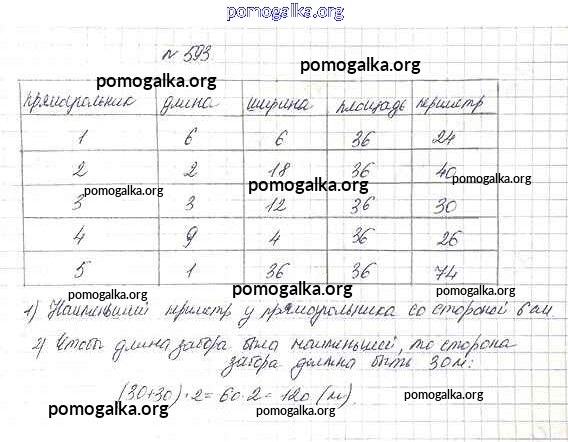 pomogalka.org
№ 593.
pomogalka.org
pomogalka.org
прямоугольник длина ширина площадь периметр
1 6 6 36 24
2 2 18 36 40
pomogalka.org
pomogalka.org
pomogalka.org
3 3 12 36 30
4 9 4 36 26
5 1 36 36 74
pomogalka.org
pomogalka.org
pomogalka.org
1) Наименьший периметр у прямоугольника со стороной 6 см.
2) Чтобы длина забора была наименьшей, то сторона
забора должна быть 30 м:
(30+30)·2=60·2=120 (м).
pomogalka.org
pomogalka.org
pomogalka.org